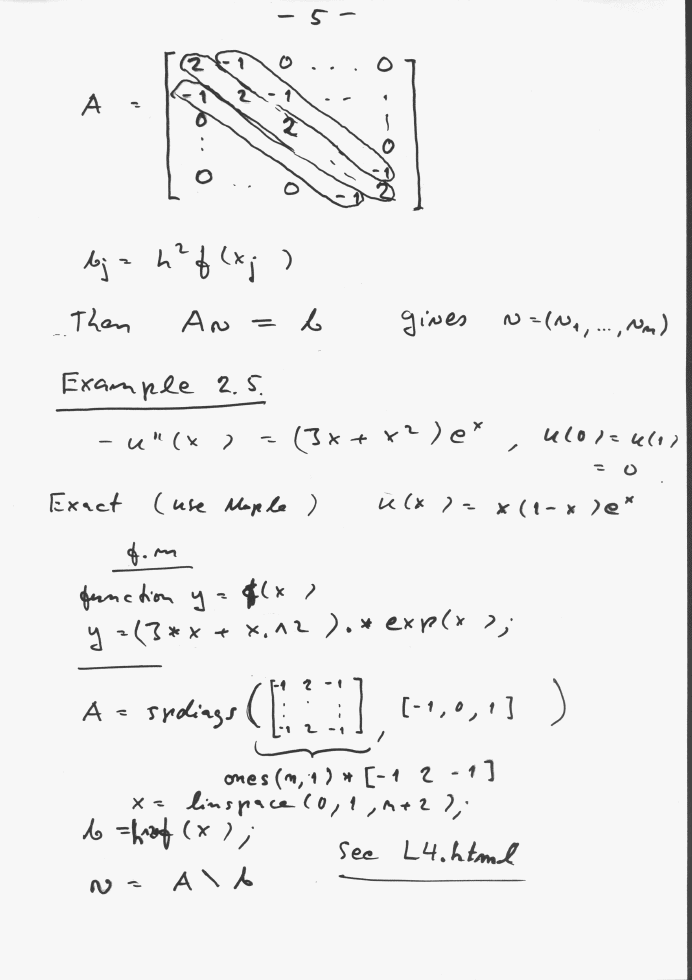 - 5 -
A = [ 2 -1 0 ... 0
-1 2 -1 ...
0 2
0
-1
0 ... 0 -1 2 ]
bj = h² f(xj)
Then Av = b gives v = (v1, ..., vn)
Example 2.5.
- u"(x) = (3x + x²)e^x , u(0) = u(1)
= 0
Exact (use Maple) u(x) = x(1-x)e^x
f.m
function y = f(x)
y = (3*x + x.^2).*exp(x);
A = spdiags([-1 2 -1
-1 2 -1], [-1, 0, 1])
ones(n,1)*[-1 2 -1]
x = linspace(0,1,n+2);
f(x);
See L4.html
v = A\b